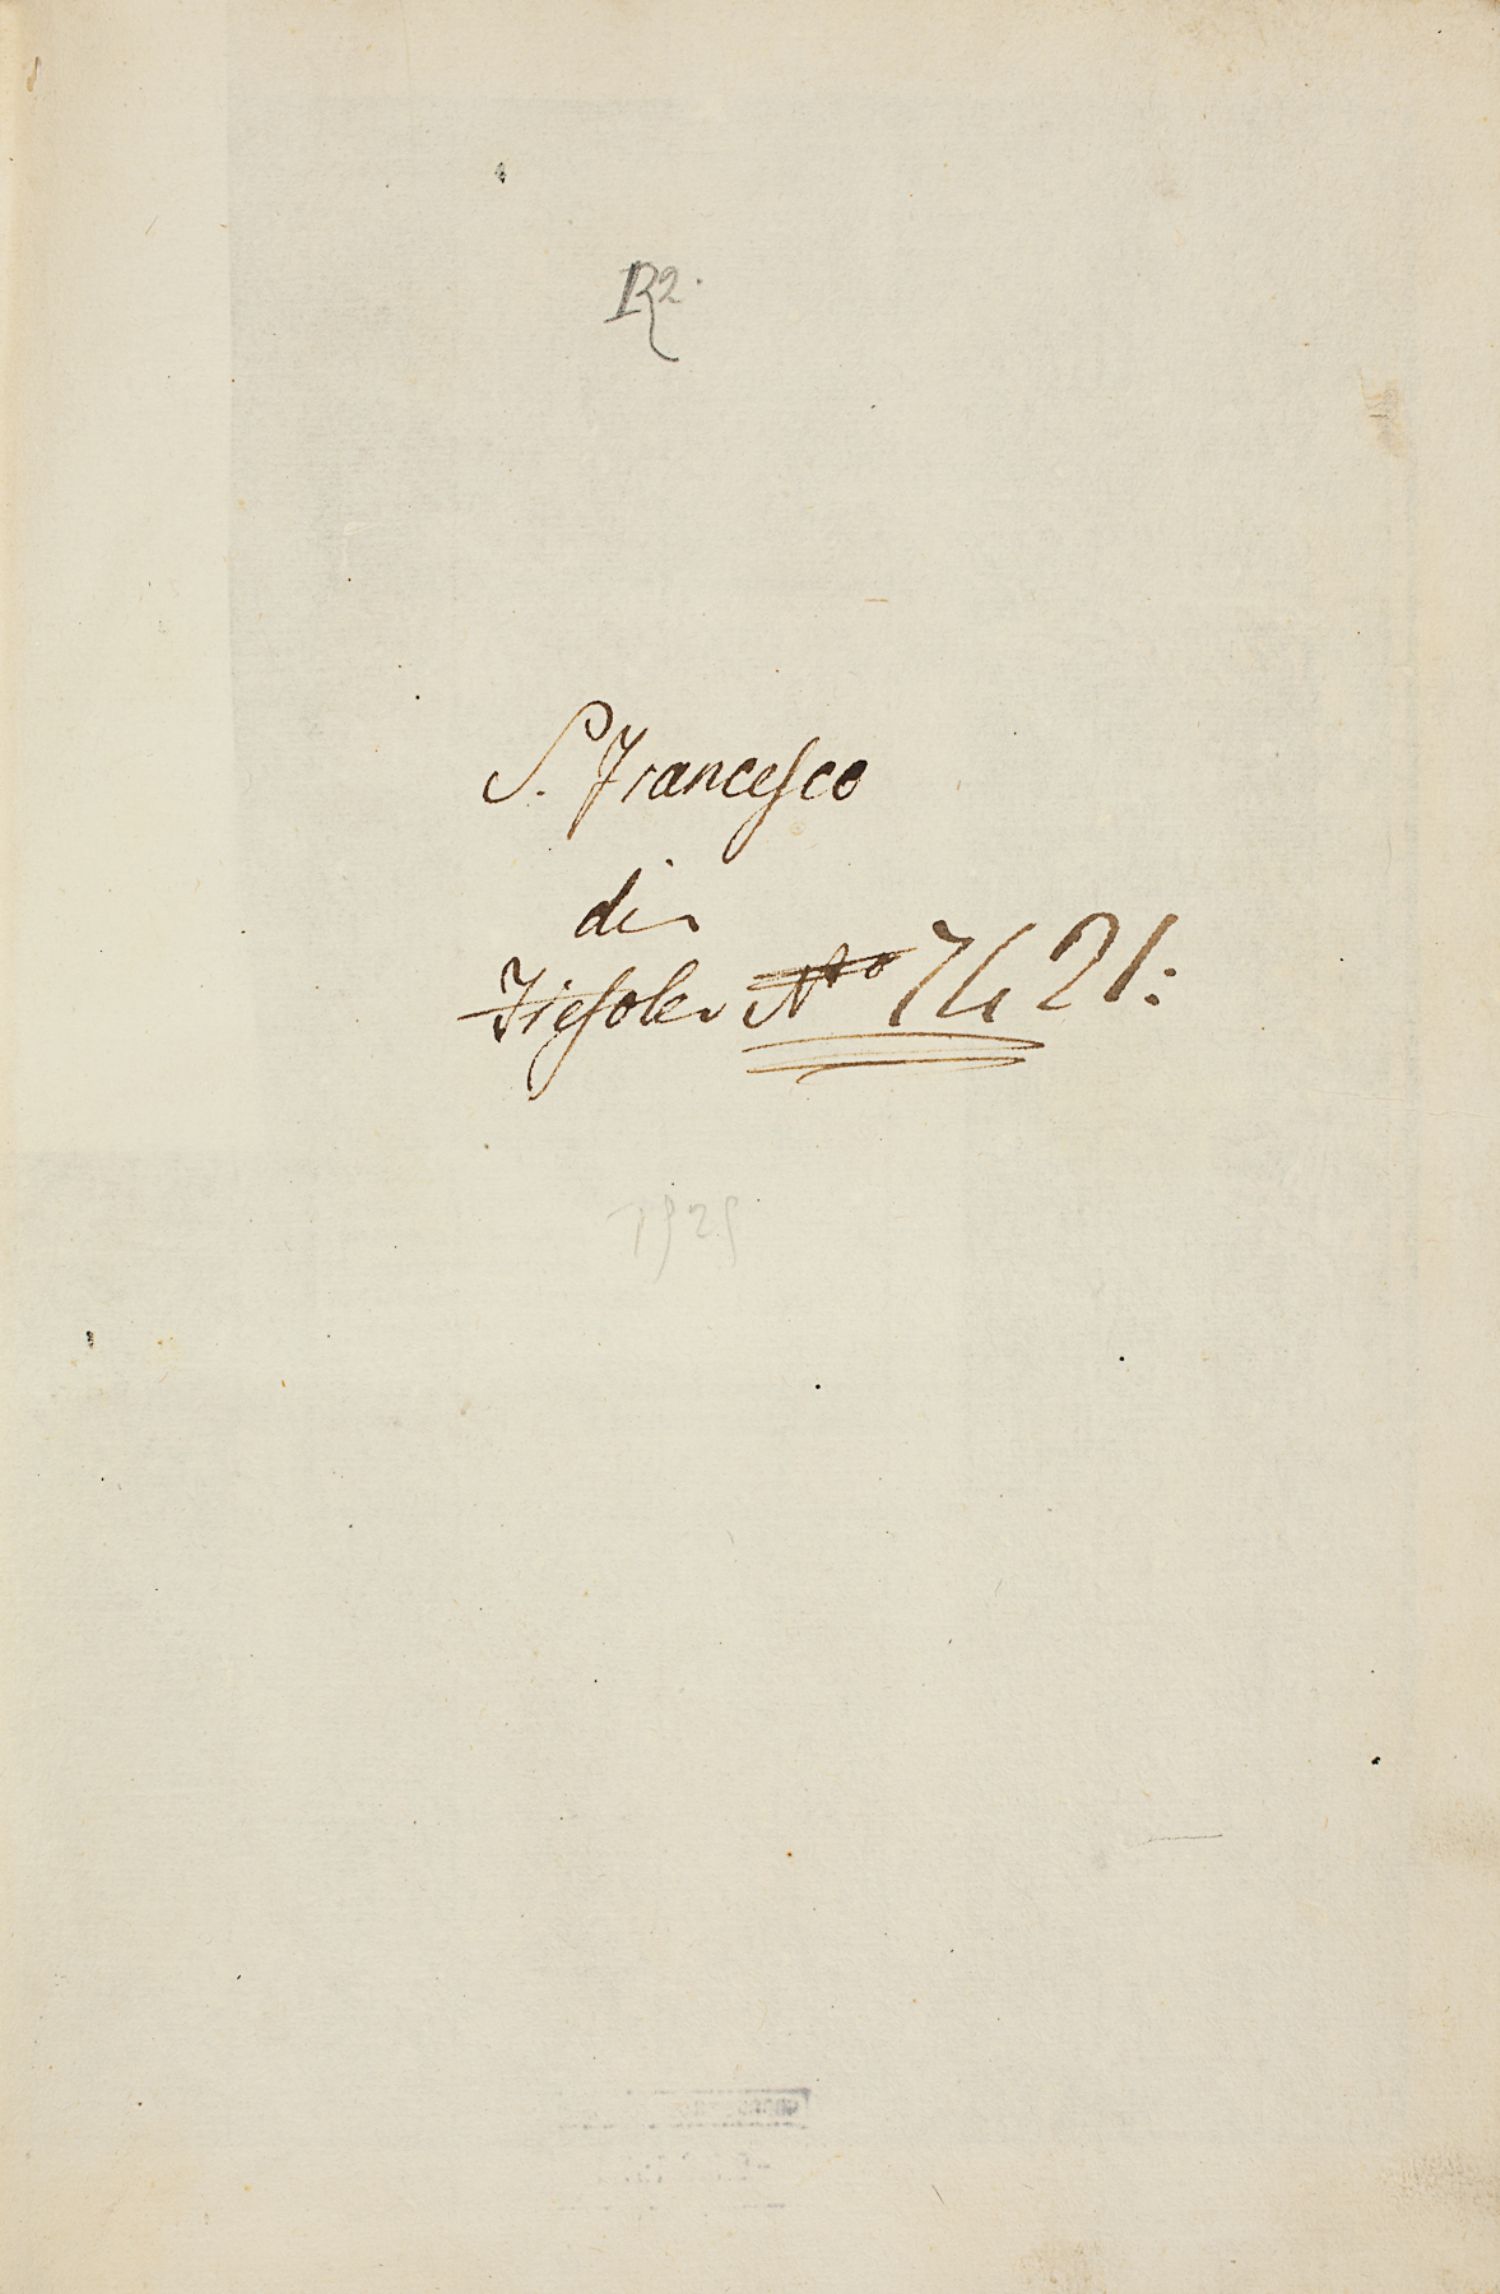 R2.
S. Francesco
di
Fiesole N⁰ 7421:
1929